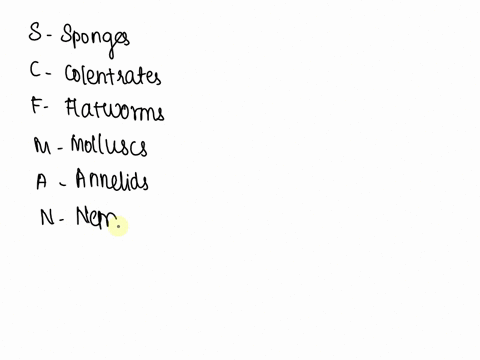 S - Sponges
C - Colentrates
F - Flatworms
M - Molluscs
A - Annelids
N - Nem